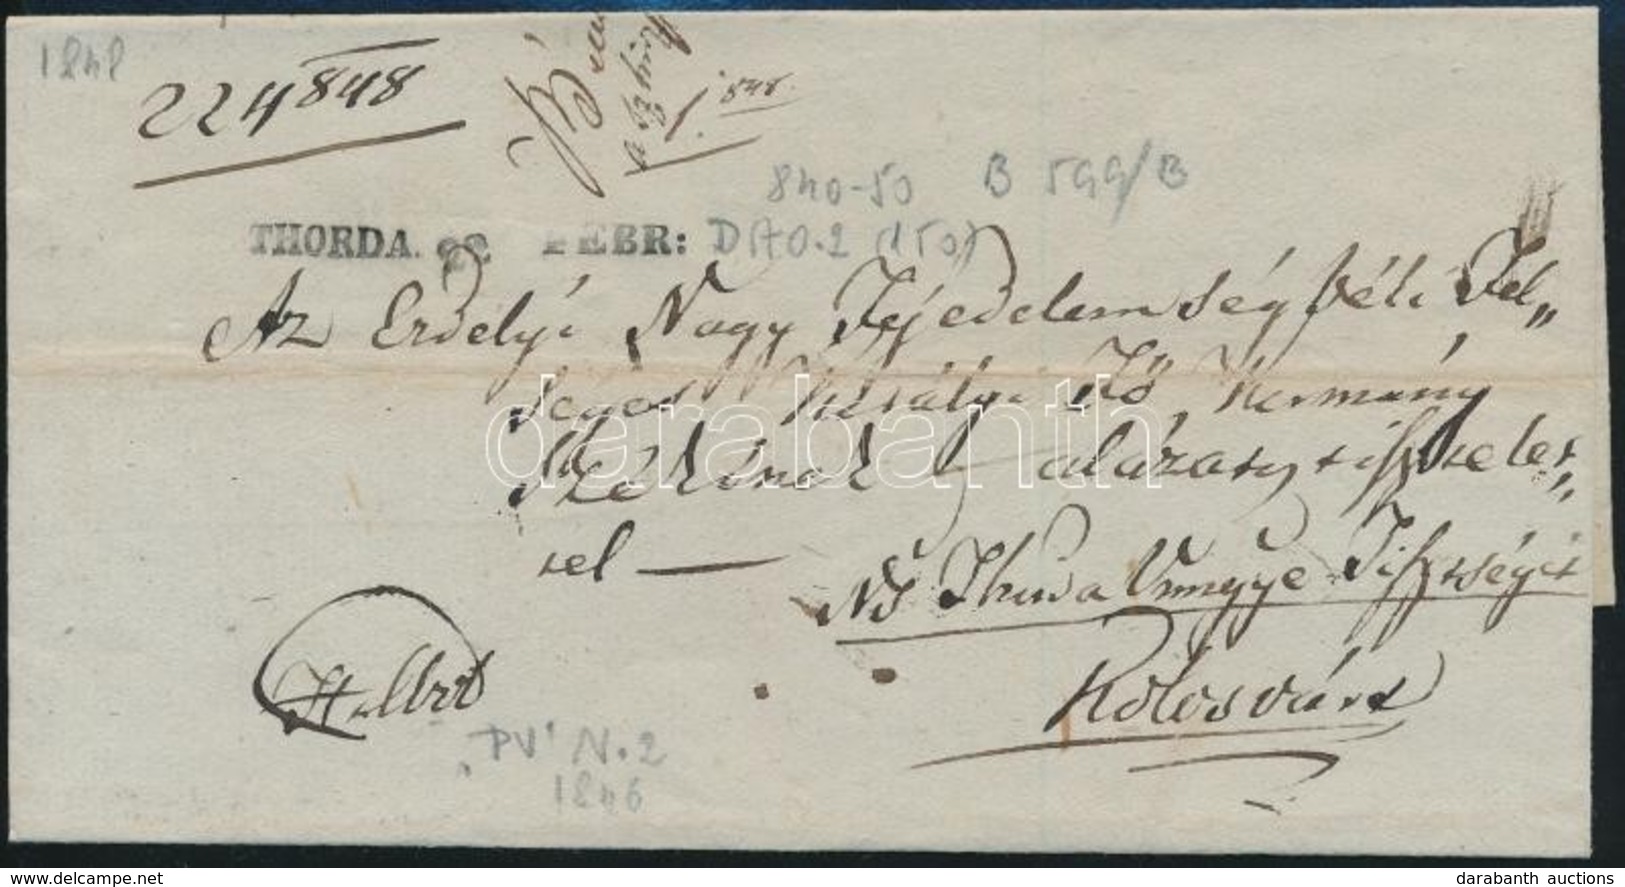 1848
224 848
848.
840-50 B 599/B
THORDA. FEBR: D 170.2 (150)
Az Erdélyi Nagy Fejedelemség béli Fel„
seges Királyi Fő Kormány
Széknek alázatos tisztelet„
tel —
Ns Thorda Vmegye Tisztségét
Kolosvárt
PV' N.2
1846
darabanth
www.delcampe.net
darabanth auctions